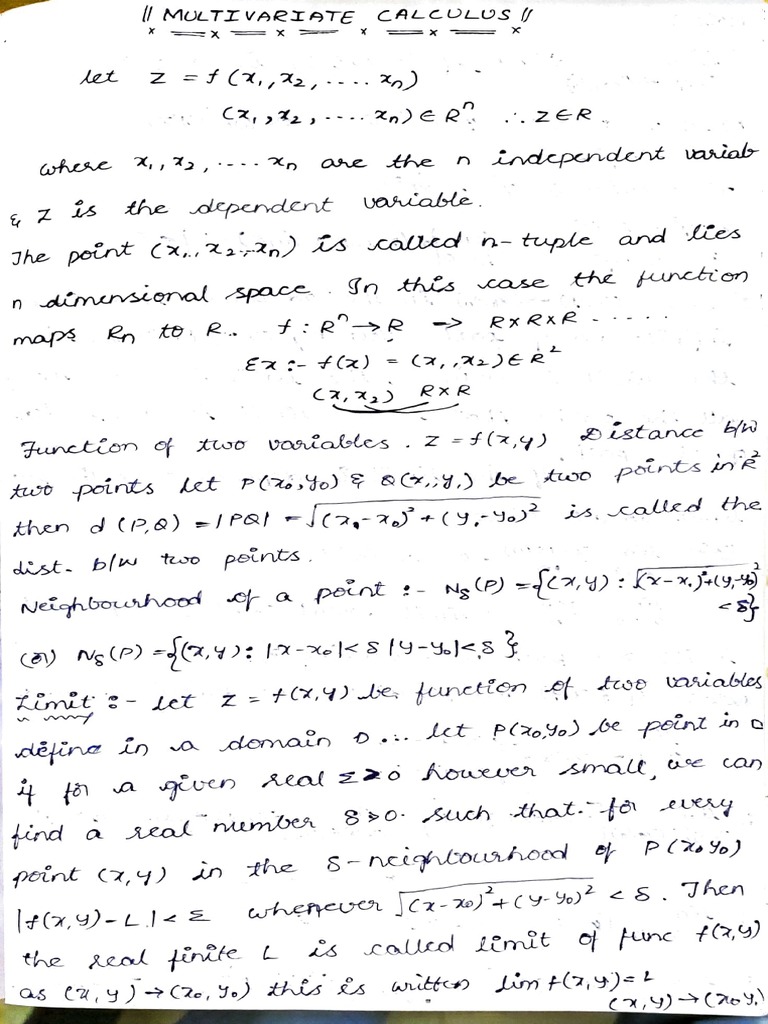 || MULTIVARIATE CALCULUS ||
let Z = f (x₁, x₂, .... xₙ)
(x₁, x₂, .... xₙ) ∈ Rⁿ. ∴ Z ∈ R
where x₁, x₂, .... xₙ are the n independent variab
& Z is the dependent variable.
The point (x₁, x₂, .. xₙ) is called n-tuple and lies
n dimensional space. In this case the function
maps Rn to R. f : Rⁿ → R => R×R×R .....
Ex :- f(x) = (x₁, x₂) ∈ R²
(x, x₂) R×R
Function of two variables. Z = f(x,y) Distance b/w
two points let P(x₀, y₀) & Q(x₁, y₁) be two points in R²
then d (P,Q) = |PQ| = √(x₁-x₀)² + (y₁-y₀)² is called the
dist- b/w two points.
Neighbourhood of a point :- Nδ(P) = {(x,y) : √(x-x₁)²+(y-y₀)²
< δ}
(or) Nδ(P) = {(x,y) : |x-x₀| < δ |y-y₀| < δ }
Limit :- let Z = f(x,y) be function of two variables
define in a domain D... let P(x₀,y₀) be point in D
if for a given real Σ>0 however small, we can
find a real number δ>0. such that for every
point (x,y) in the δ-neighbourhood of P(x₀ y₀)
|f(x,y) - L| < Σ whenever √(x-x₀)²+(y-y₀)² < δ. Then
the real finite L is called limit of func f(x,y)
as (x,y) → (x₀, y₀) this is written lim f(x,y) = L
(x,y) → (x₀ y₁)